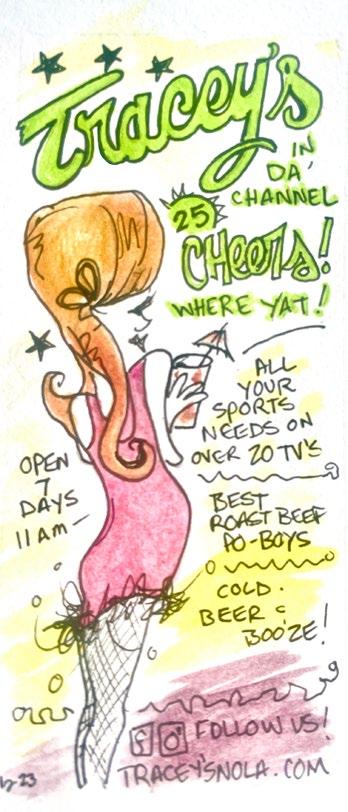 Tracey's
IN
DA'
CHANNEL
25
CHEERS!
WHERE YAT!
ALL
YOUR
SPORTS
NEEDS ON
OVER 20 TV'S
OPEN
7
DAYS
11AM-
BEST
ROAST BEEF
PO-BOYS
COLD.
BEER &
BOOZE!
FOLLOW US!
TRACEY'SNOLA.COM
23